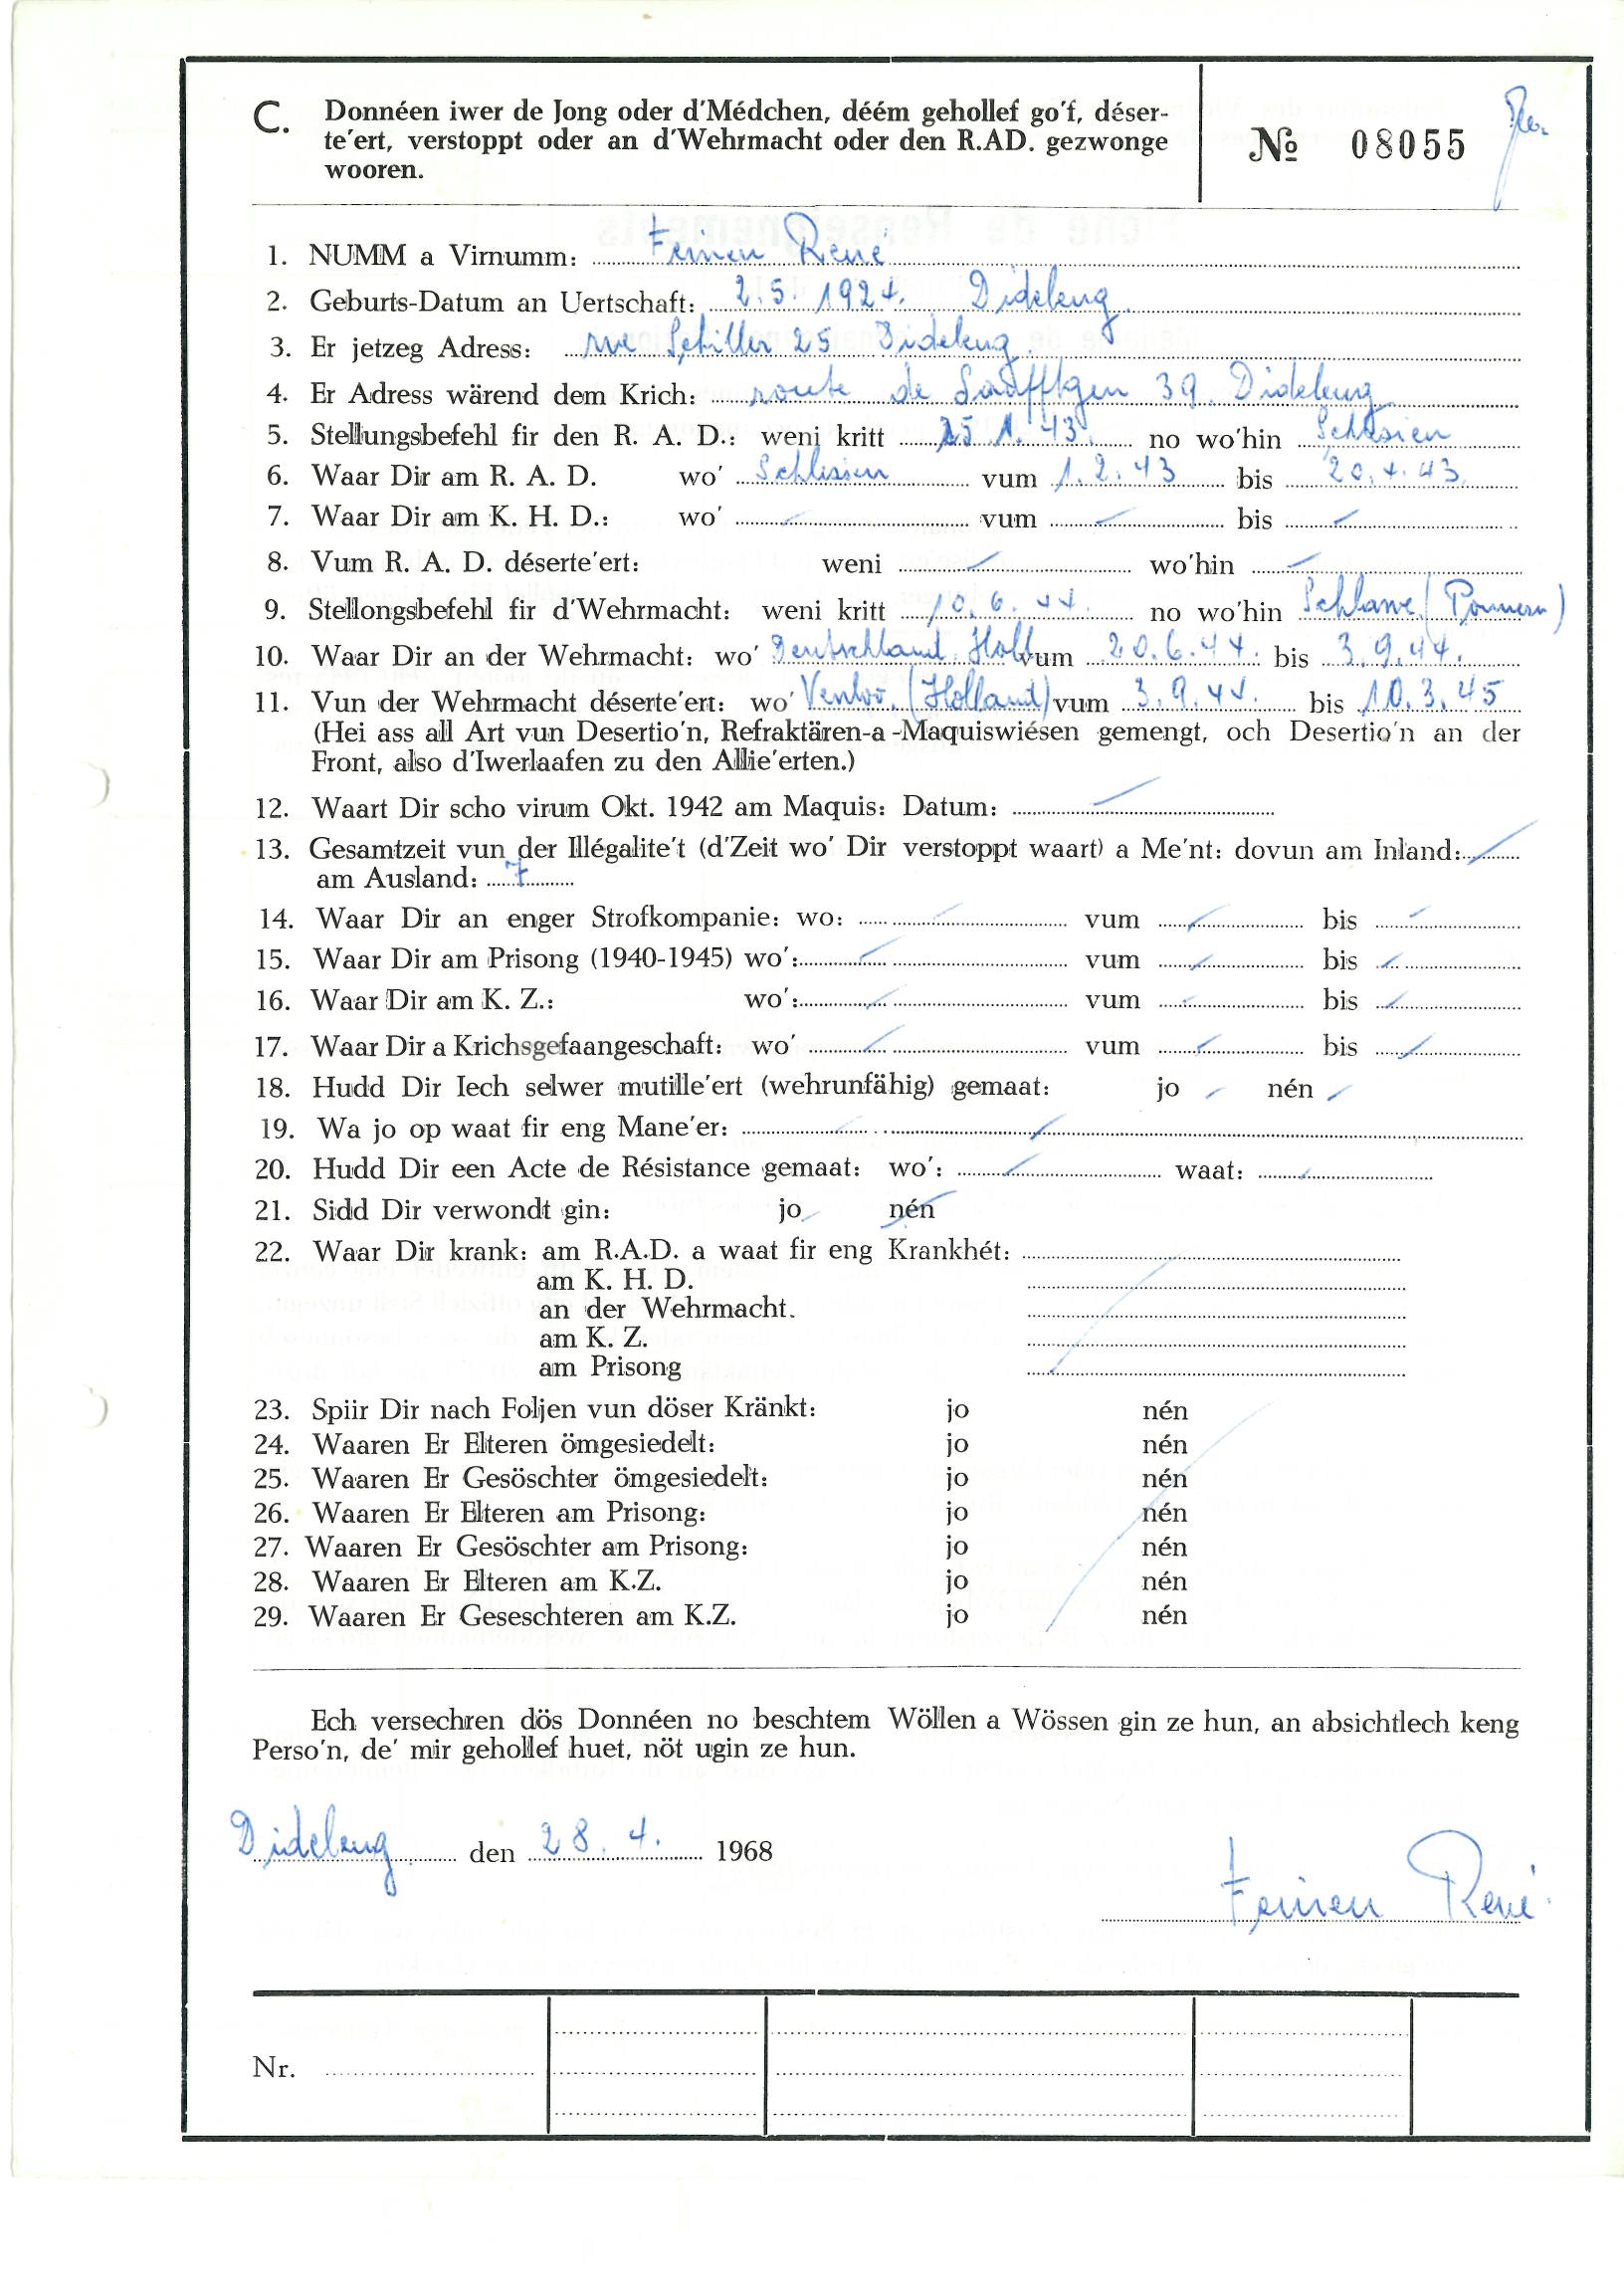 C. Donnéen iwer de Jong oder d'Médchen, déém gehollef go'f, déser-
te'ert, verstoppt oder an d'Wehrmacht oder den R.AD. gezwonge
wooren.
№ 08055
1. NUMM a Virnumm: Feinen René
2. Geburts-Datum an Uertschaft: 2.5.1924. Dideleng
3. Er jetzeg Adress: rue Schiller 25 Dideleng.
4. Er Adress wärend dem Krich: route de 39. Dideleng
5. Stellungsbefehl fir den R. A. D.: weni kritt 25.1.43. no wo'hin Schlesien
6. Waar Dir am R. A. D. wo' Schlesien vum 1.2.43 bis 20.4.43.
7. Waar Dir am K. H. D.: wo' vum bis
8. Vum R. A. D. déserte'ert: weni wo'hin
9. Stellongsbefehl fir d'Wehrmacht: weni kritt 10.6.44. no wo'hin Schlawe (Pommern)
10. Waar Dir an der Wehrmacht: wo' Deutschland. Holl. vum 20.6.44. bis 3.9.44.
11. Vun der Wehrmacht déserte'ert: wo' Venloo. (Holland) vum 3.9.44. bis 10.3.45
(Hei ass all Art vun Desertio'n, Refraktären-a -Maquiswiésen gemengt, och Desertio'n an der
Front, also d'Iwerlaafen zu den Allie'erten.)
12. Waart Dir scho virum Okt. 1942 am Maquis: Datum:
13. Gesamtzeit vun der Illégalite't (d'Zeit wo' Dir verstoppt waart) a Me'nt: dovun am Inland:
am Ausland: 7
14. Waar Dir an enger Strofkompanie: wo: vum bis
15. Waar Dir am Prisong (1940-1945) wo': vum bis
16. Waar Dir am K. Z.: wo': vum bis
17. Waar Dir a Krichsgefaangeschaft: wo' vum bis
18. Hudd Dir Iech selwer mutille'ert (wehrunfähig) gemaat: jo nén
19. Wa jo op waat fir eng Mane'er:
20. Hudd Dir een Acte de Résistance gemaat: wo': waat:
21. Sidd Dir verwondt gin: jo nén
22. Waar Dir krank: am R.A.D. a waat fir eng Krankhét:
am K. H. D.
an der Wehrmacht.
am K. Z.
am Prisong
23. Spiir Dir nach Foljen vun döser Kränkt: jo nén
24. Waaren Er Elteren ömgesiedelt: jo nén
25. Waaren Er Gesöschter ömgesiedelt: jo nén
26. Waaren Er Elteren am Prisong: jo nén
27. Waaren Er Gesöschter am Prisong: jo nén
28. Waaren Er Elteren am K.Z. jo nén
29. Waaren Er Geseschteren am K.Z. jo nén
Ech versechren dös Donnéen no beschtem Wöllen a Wössen gin ze hun, an absichtlech keng
Perso'n, de' mir gehollef huet, nöt ugin ze hun.
Dideleng. den 28.4. 1968
Feinen René
Nr.